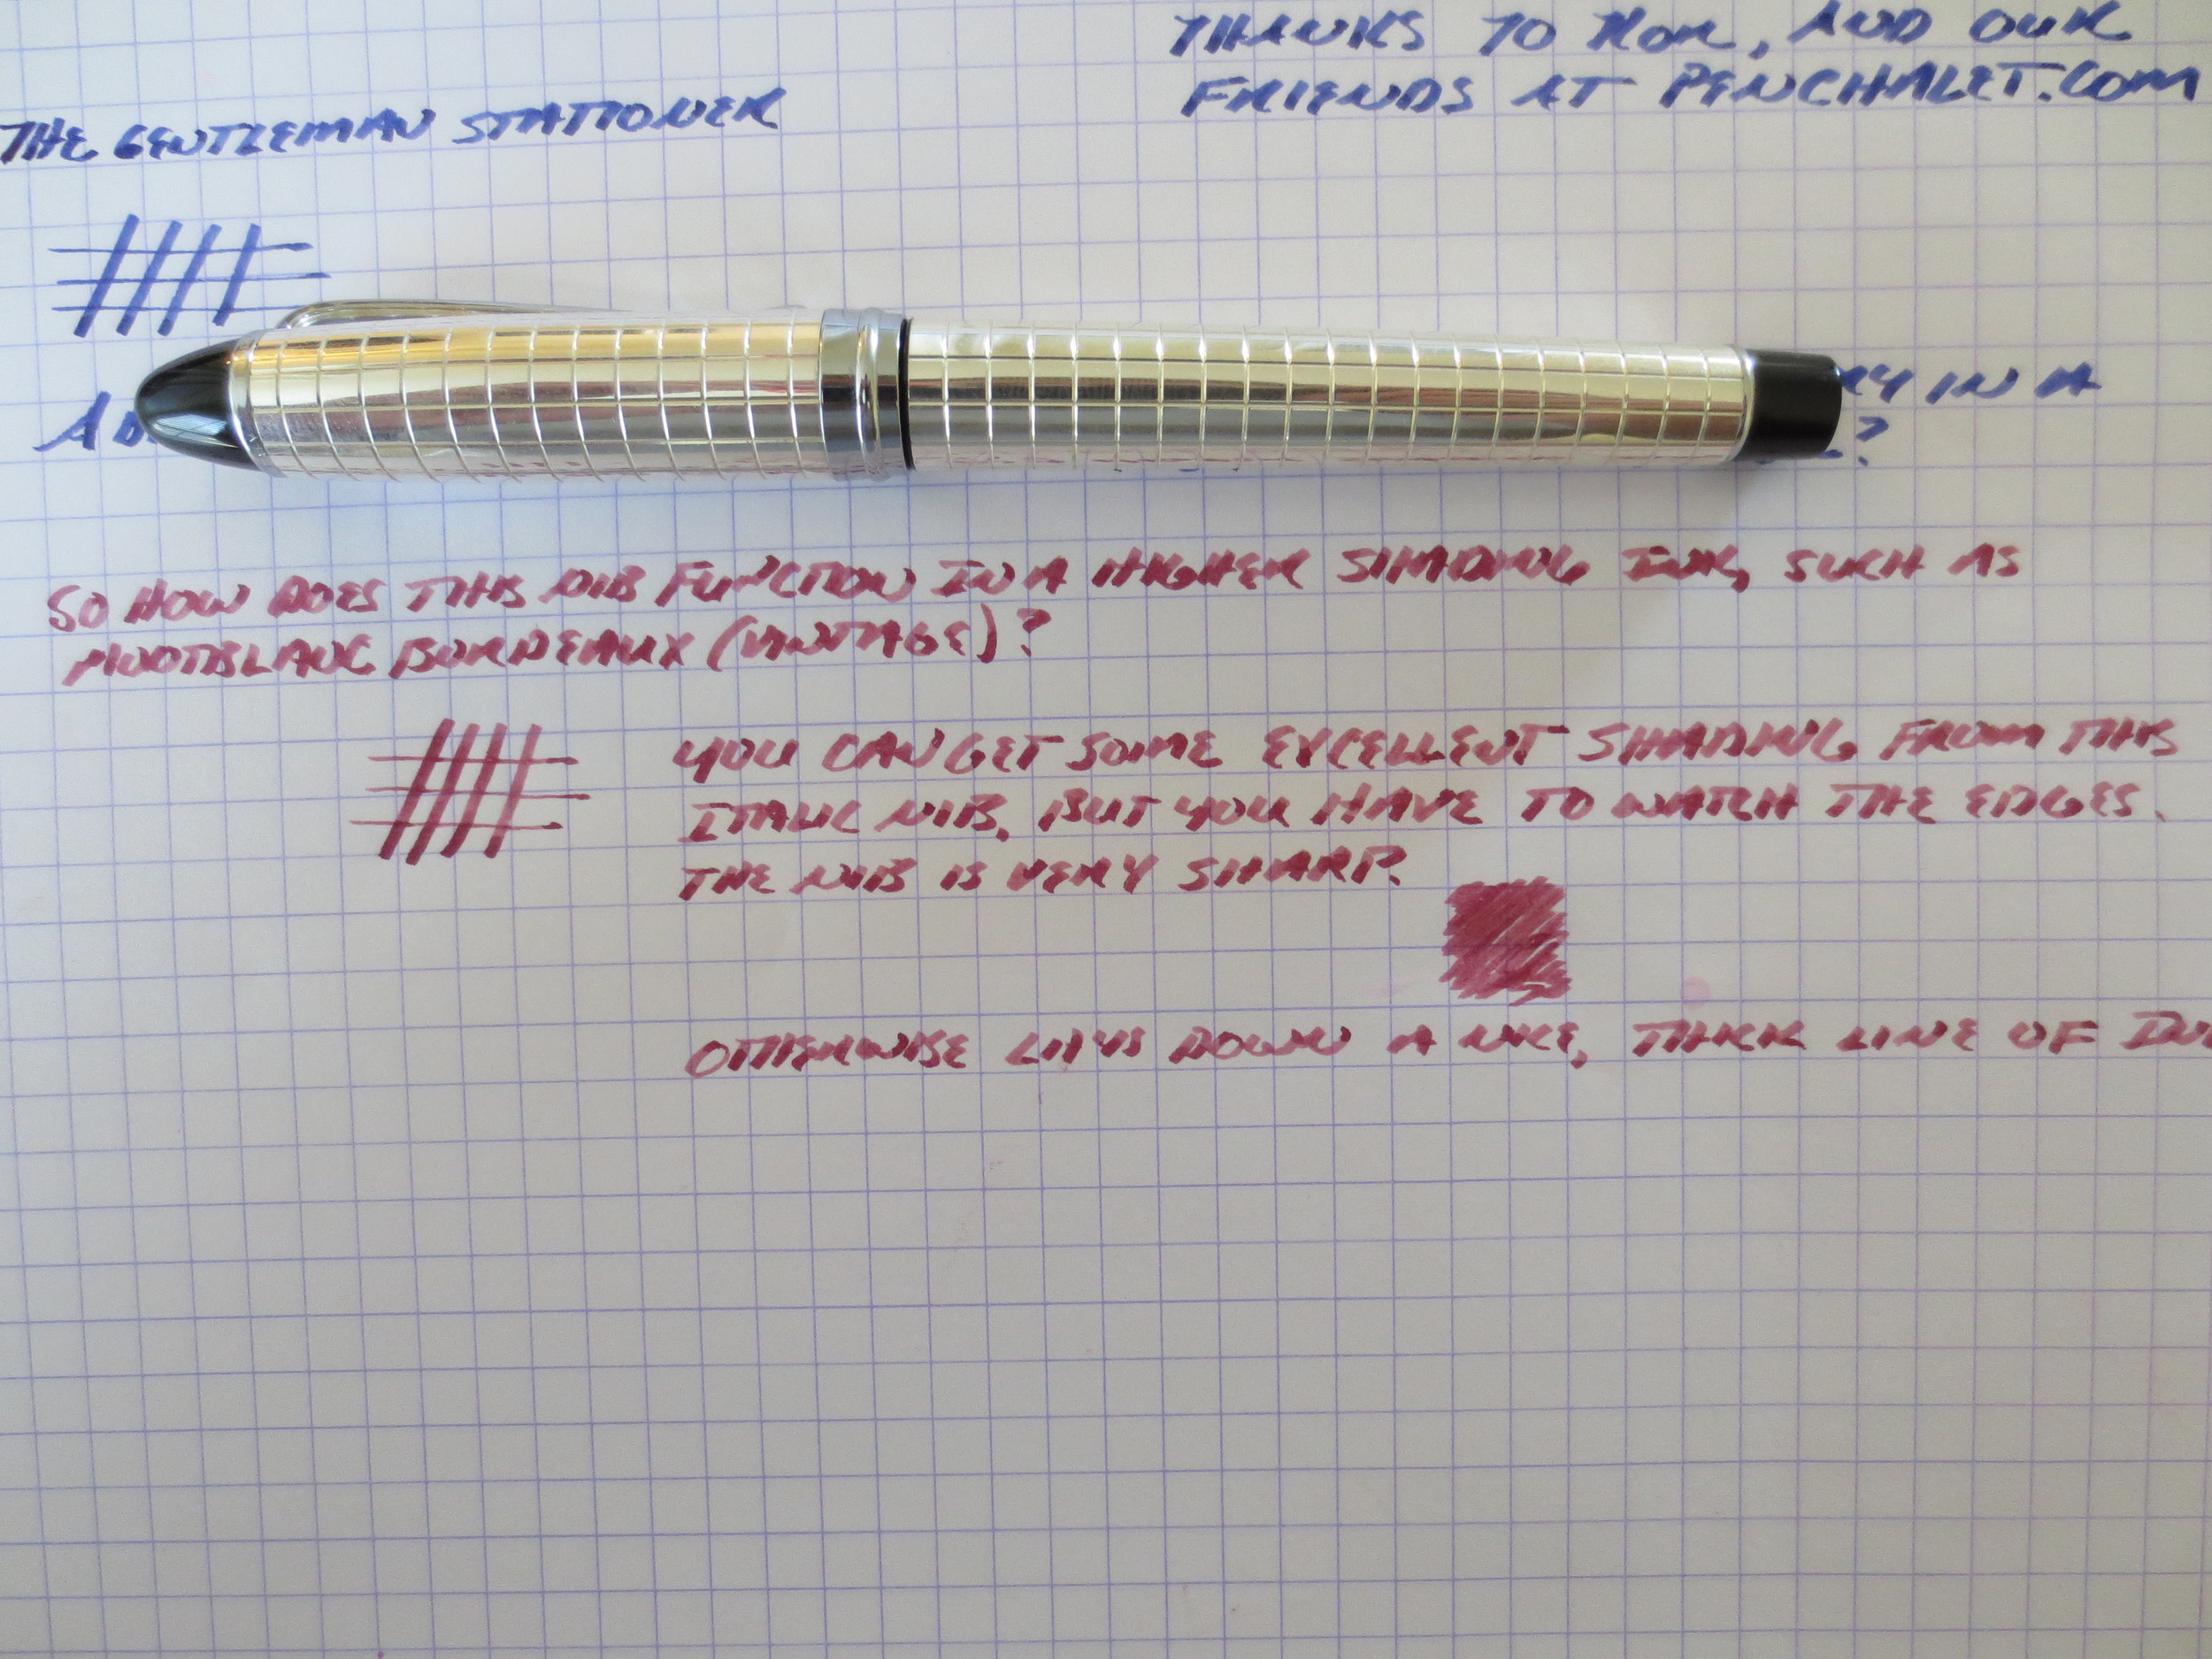 THANKS TO RON, AND OUR
FRIENDS AT PENCHALET.COM
THE GENTLEMAN STATIONER
IN A
?
SO HOW DOES THIS NIB FUNCTION IN A HIGHER SHADING INK, SUCH AS
MONTBLANC BORDEAUX (VINTAGE)?
YOU CAN GET SOME EXCELLENT SHADING FROM THIS
ITALIC NIB, BUT YOU HAVE TO WATCH THE EDGES.
THE NIB IS VERY SHARP.
OTHERWISE LAYS DOWN A NICE, THICK LINE OF